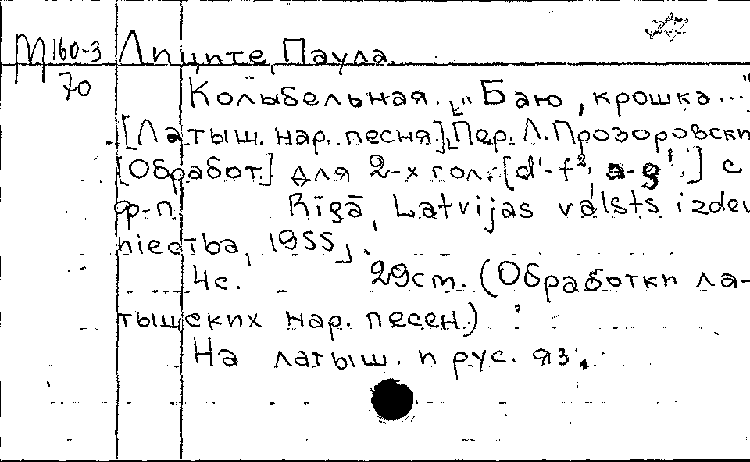 М 160-3 Лиците, Паула.
70 Колыбельная. "Баю, крошка..."
[Латыш. нар. песня]. Пер. Л. Прозоровски
[Обработ.] для 2-х гол. [d¹-f², a-g¹.] с
ф-п. Rīgā, Latvijas valsts izdev
niecība, 1955.
4с. 29см. (Обработки ла-
тышских нар. песен.)
На латыш. и рус. яз.